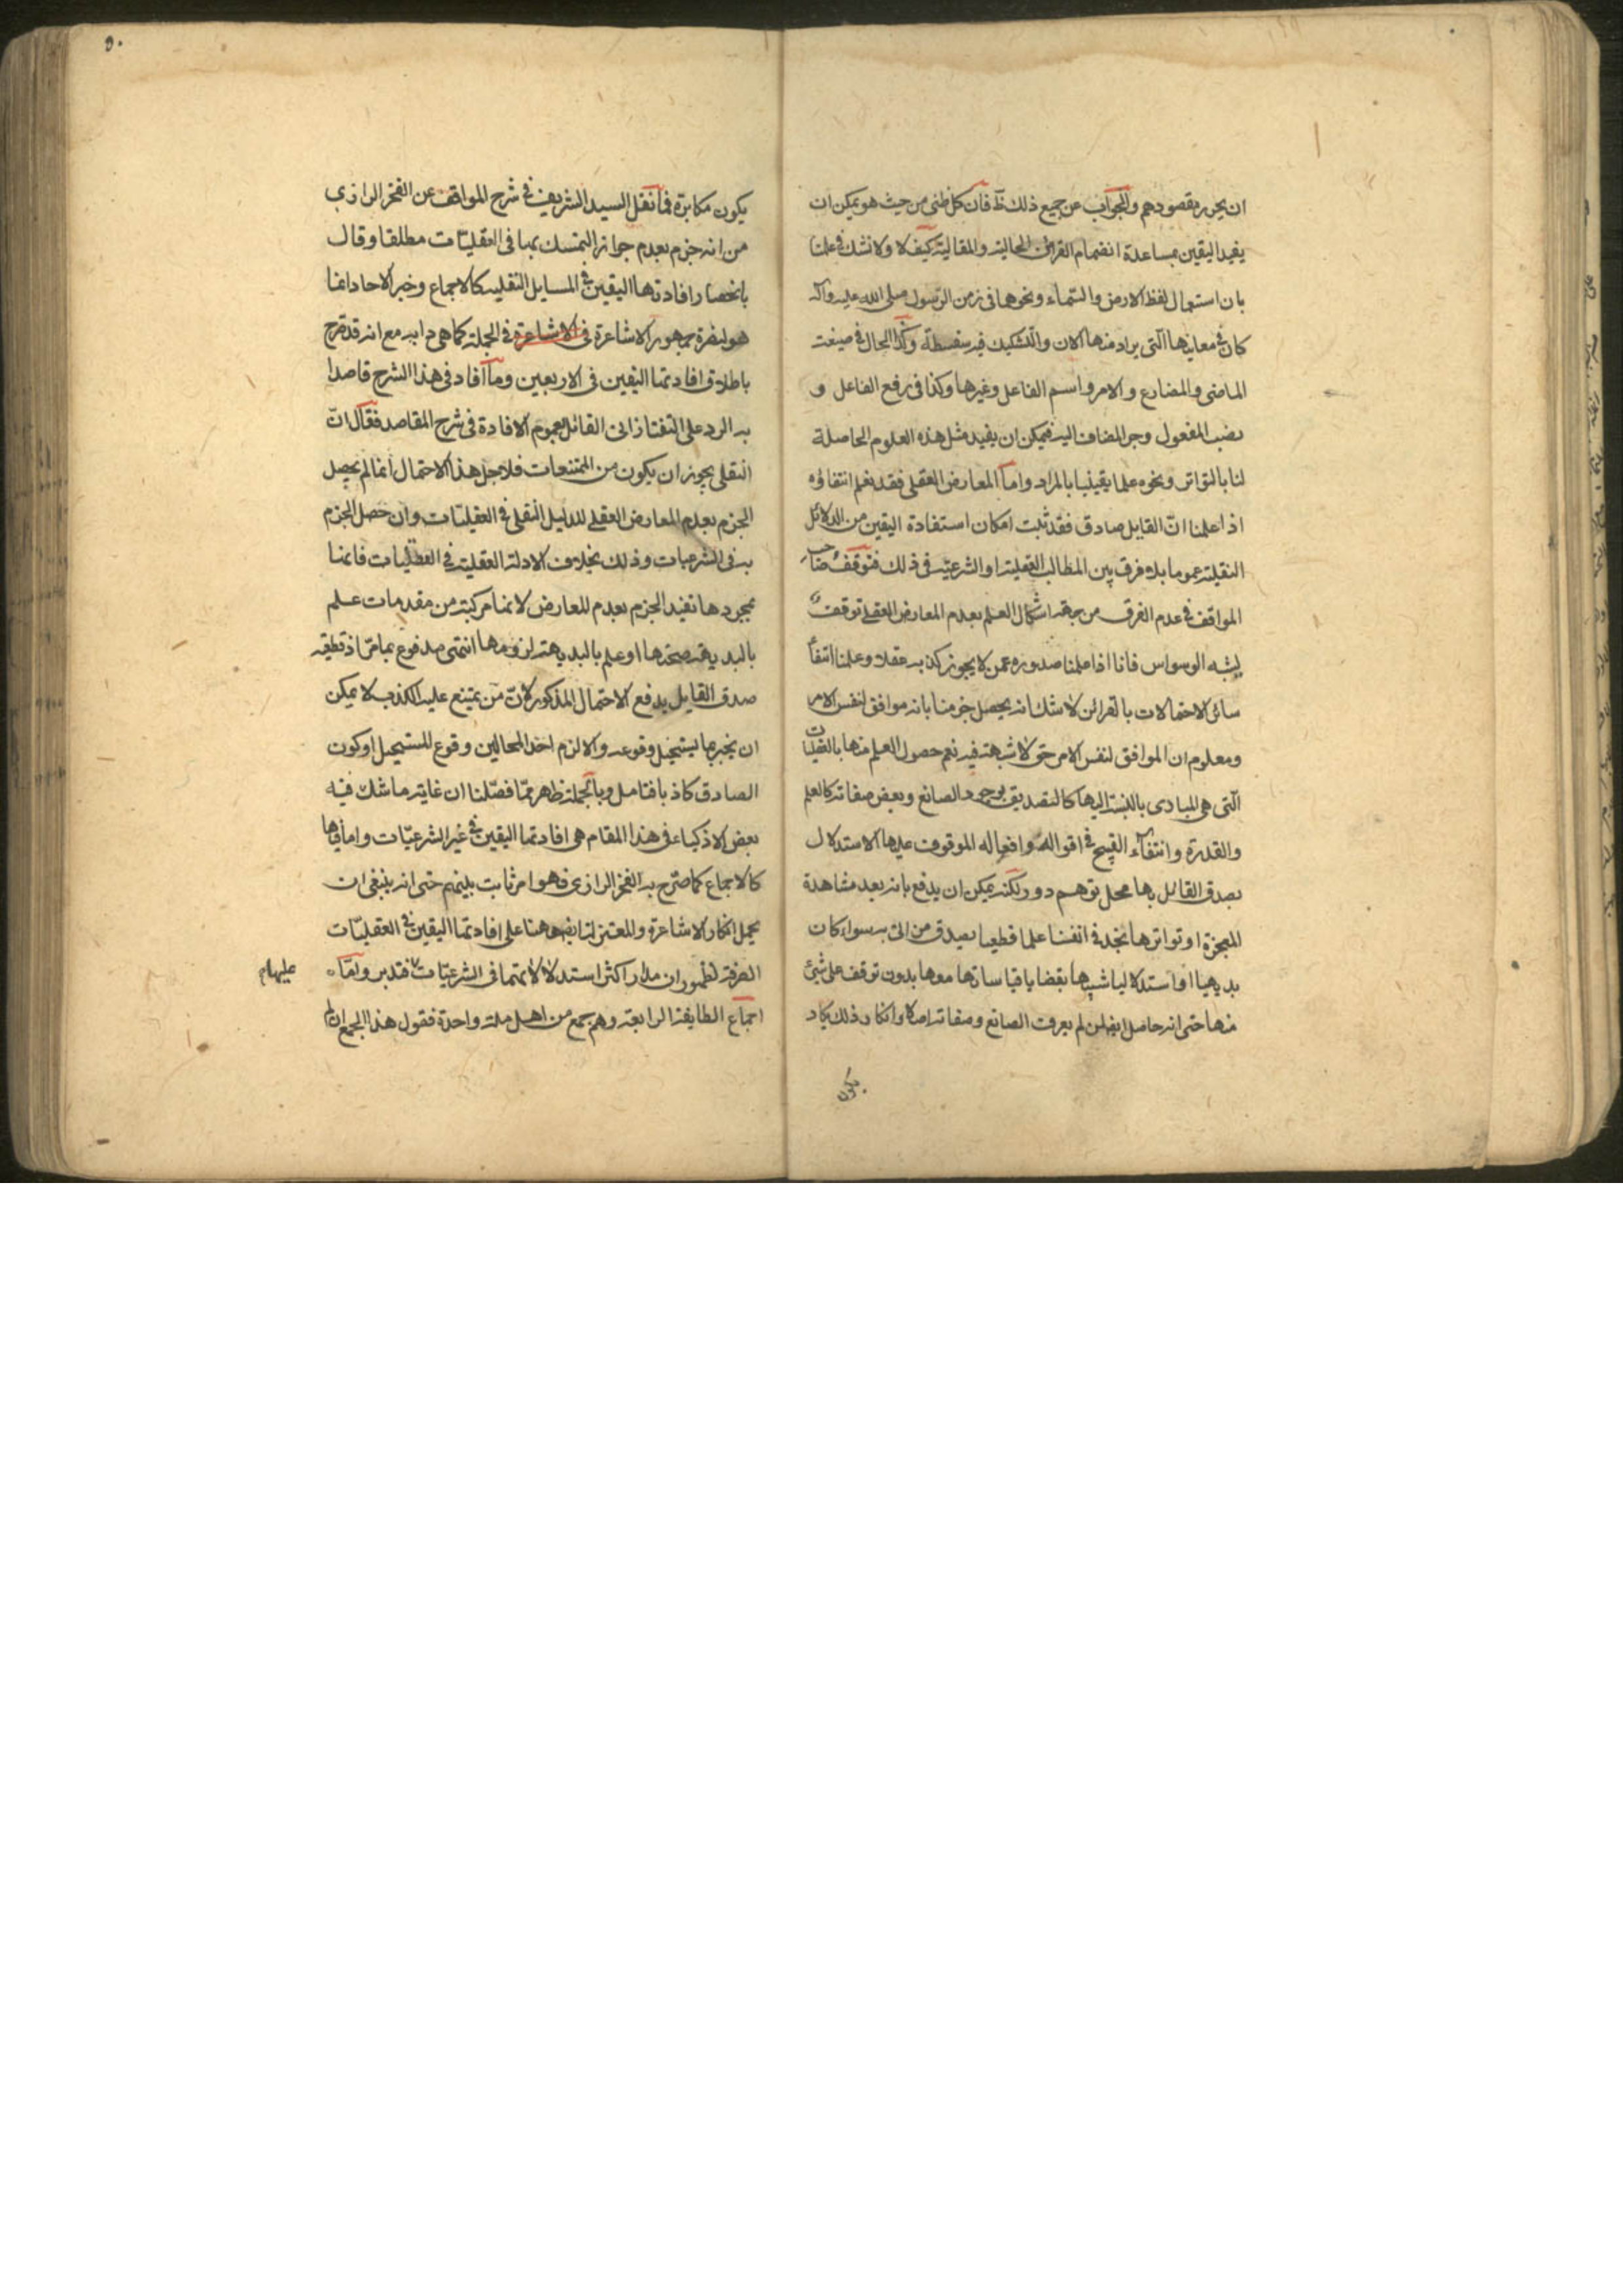 ان يحرر مقصودهم والجواب عن جميع ذلك ظ فان كل ظني من حيث هو يمكن ان
يفيد اليقين بمساعدة انضمام القرائن الحالية والمقالية كيف لا ولا نشك في علمنا
بان استعمال لفظ الارض والسماء ونحوها في زمن الرسول صلى الله عليه وآله
كان في معانيها التي يراد منها الان والتشكيك فيه سفسطة وكذا الحال في صيغة
الماضي والمضارع والامر واسم الفاعل وغيرها وكذا في رفع الفاعل و
نصب المفعول وجر المضاف اليه فيمكن ان يفيد مثل هذه العلوم الحاصلة
لنا بالتواتر ونحوه علما يقينيا بالمراد واما المعارض العقلي فقد نعلم انتفاؤه
اذا علمنا ان القايل صادق فقد ثبت امكان استفادة اليقين من الدلائل
النقلية عموما بلا فرق بين المطالب العقلية او الشرعية في ذلك فتوقف صاحب
المواقف في عدم الفرق من جهة اشكال العلم بعدم المعارض العقلي توقف
يشبه الوسواس فانا اذا علمنا صدوره عمن لا يجوز كذبه عقلا وعلمنا انتفا
سائر الاحتمالات بالقرائن لا شك انه يحصل جزمنا بانه موافق لنفس الامر
ومعلوم ان الموافق لنفس الامر حق لا شبهة فيه نعم حصول العلم منها بالعقليات
التي هي المبادى بالنسبة اليها كالتصديق بوجود الصانع وبعض صفاته كالعلم
والقدرة وانتفاء القبيح في اقواله وافعاله الموقوف عليها الاستدلال
بصدق القائل بها محل توهم دور لكنه يمكن ان يدفع بانه بعد مشاهدة
المعجزة او تواترها نجد في انفسنا علما قطعيا بصدق من اتى به سواء كان
بديهيا او استدلاليا شبيها بقضايا قياساتها معها بدون توقف على شيئ
منها حتى انه حاصل ايضا لمن لم يعرف الصانع وصفاته اصلا وانكار ذلك يكاد
يكون
٥٠
يكون مكابرة فما نقل السيد الشريف في شرح المواقف عن الفخر الرازي
من انه جزم بعدم جواز التمسك بها في العقليات مطلقا وقال
بانحصار افادتها اليقين في المسايل النقلية كالاجماع وخبر الاحاد انما
هو لنصرة جمهور الاشاعرة في الاشاعرة في الجملة كما هي دابه مع انه قد صرح
باطلاق افادتها اليقين في الاربعين وما افاد في هذا الشرح قاصدا
به الرد على التفتازاني القائل بعموم الافادة في شرح المقاصد فقال ان
النقلي يجوز ان يكون من الممتنعات فلاجل هذا الاحتمال انما لم يحصل
الجزم بعدم المعارض العقلي للدليل النقلي في العقليات وان حصل الجزم
به في الشرعيات وذلك بخلاف الادلة العقلية في العقليات فانها
بمجردها تفيد الجزم بعدم المعارض لانها مركبة من مقدمات علم
بالبديهة صحتها او علم بالبديهة لزومها انتهى مدفوع بما مر اذ قطعية
صدق القايل يدفع الاحتمال المذكور لان من يمتنع عليه الكذب لا يمكن
ان يخبر بما يستحيل وقوعه والا لزم احد المحالين وقوع المستحيل او كون
الصادق كاذبا فتامل وبالجملة ظهر مما فصلنا ان غاية ما شك فيه
بعض الاذكياء في هذا المقام هي افادتها اليقين في غير الشرعيات واما فيها
كالاجماع كما صرح به الفخر الرازي فهو امر ثابت بينهم حتى انه ينبغي ان
يحمل انكار الاشاعرة والمعتزلة ايضا ههنا على افادتها اليقين في العقليات
الصرفة لظهور ان مدار اكثر استدلالاتهما في الشرعيات فتدبر واما
عليهام
اجماع الطايفة الرابعة وهم جمع من اهل ملة واحدة فنقول هذا الجمع ان لم